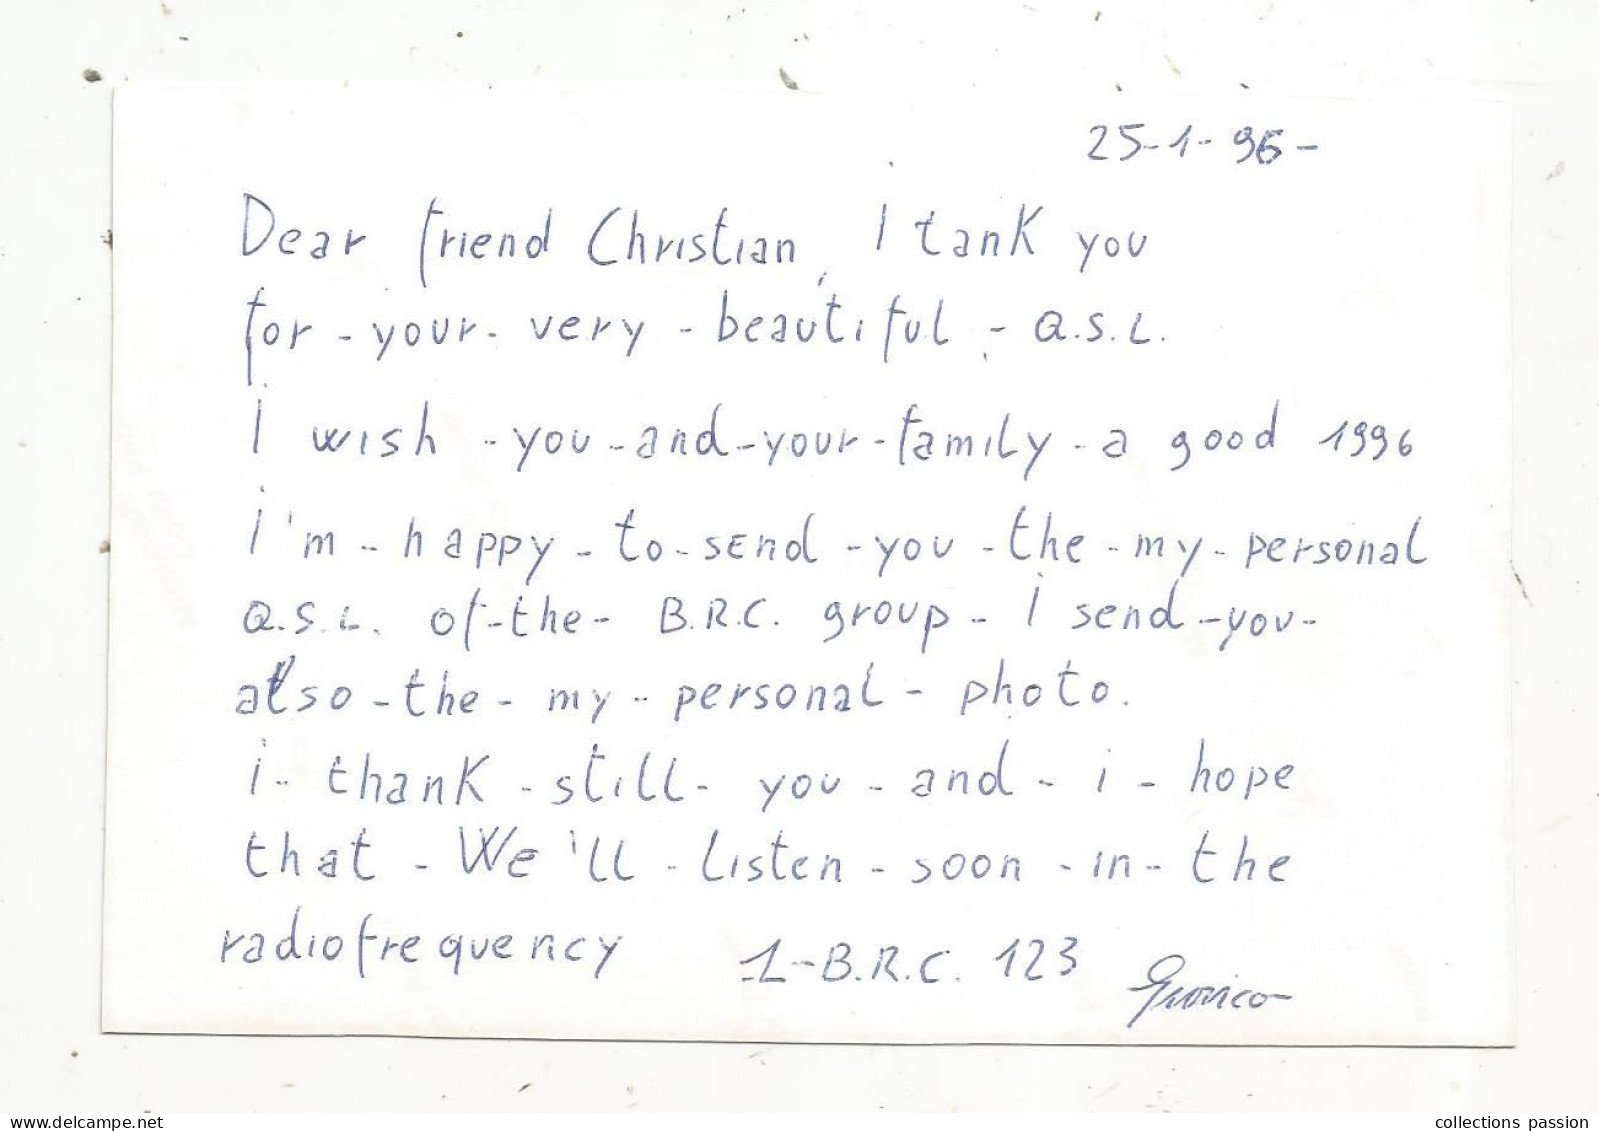 25-1-96-
Dear friend Christian, I tank you
for-your-very-beautiful-Q.S.L.
I wish-you-and-your-family-a good 1996
I'm-happy-to-send-you-the-my-personal
Q.S.L. of-the-B.R.C. group-I send-you-
also-the-my-personal-photo.
i-thank-still-you-and-i-hope
that-We'll-listen-soon-in-the
radiofrequency 1-B.R.C. 123
www.delcampe.net
collections passion